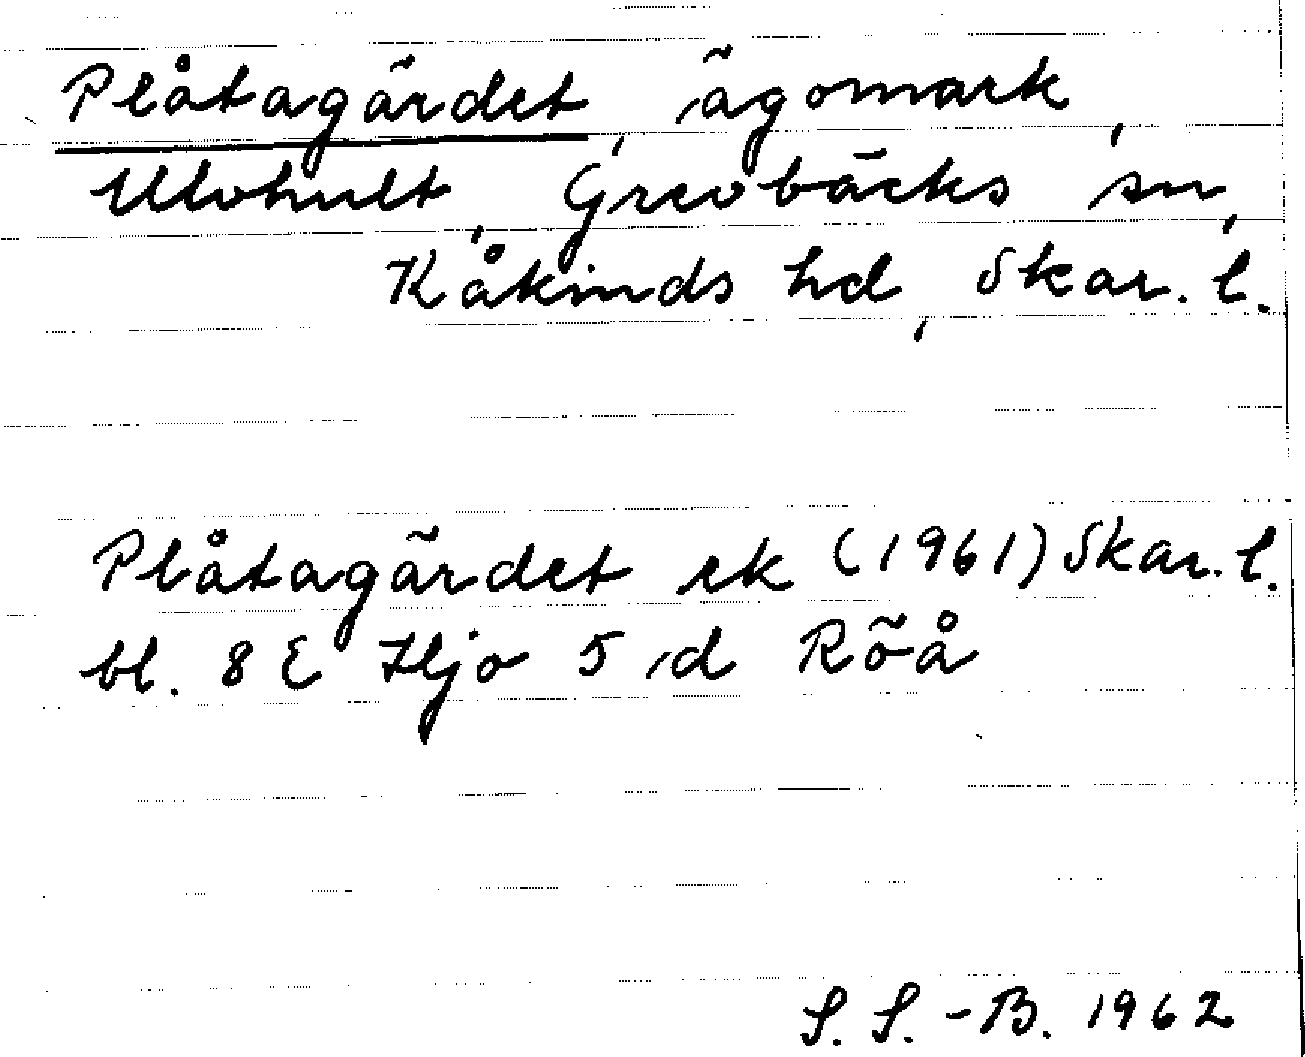 Plåtagärdet, ägomark,
Ulvhult, Grevbäcks sn,
Kåkinds hd, Skar. l.
Plåtagärdet ek (1961) Skar. l.
bl. 8 E Hjo 5 d Röå
S. S.-B. 1962